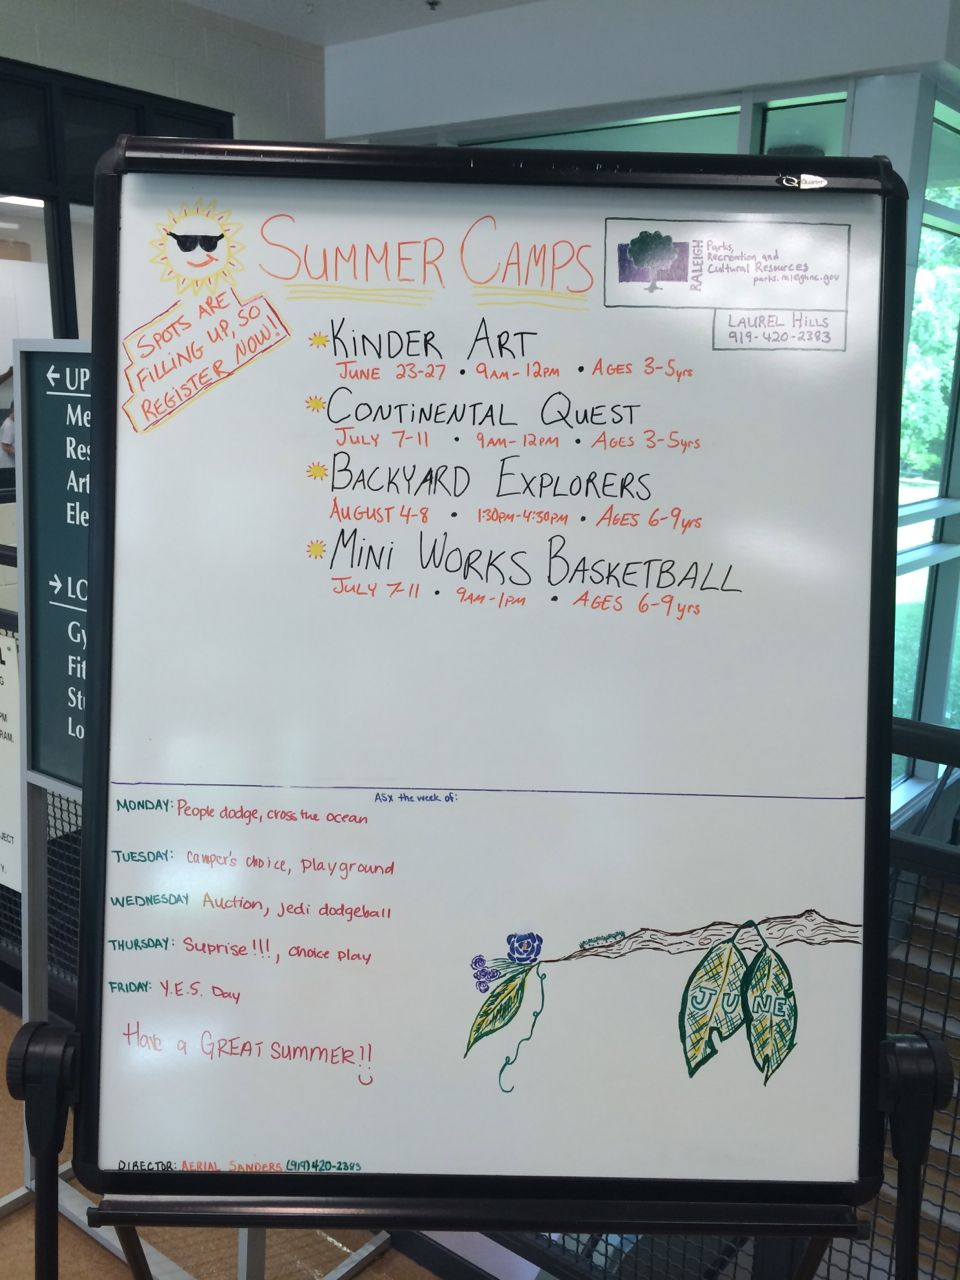 Quartet
SUMMER CAMPS
SPOTS ARE
FILLING UP, SO
REGISTER NOW!
RALEIGH
Parks,
Recreation and
Cultural Resources
parks.raleighnc.gov
LAUREL HILLS
919-420-2383
KINDER ART
JUNE 23-27 • 9AM-12PM • AGES 3-5yrs
CONTINENTAL QUEST
JULY 7-11 • 9AM-12PM • AGES 3-5yrs
BACKYARD EXPLORERS
AUGUST 4-8 • 1:30PM-4:30PM • AGES 6-9yrs
MINI WORKS BASKETBALL
JULY 7-11 • 9AM-1PM • AGES 6-9yrs
ASX the week of:
MONDAY: People dodge, cross the ocean
TUESDAY: camper's choice, playground
WEDNESDAY Auction, jedi dodgeball
THURSDAY: Suprise!!!, choice play
FRIDAY: Y.E.S. Day
Have a GREAT SUMMER!!
JUNE
DIRECTOR: AERIAL SANDERS (919)420-2383
← UP
Me
Res
Art
Ele
→ LO
Gy
Fit
Stu
Lo